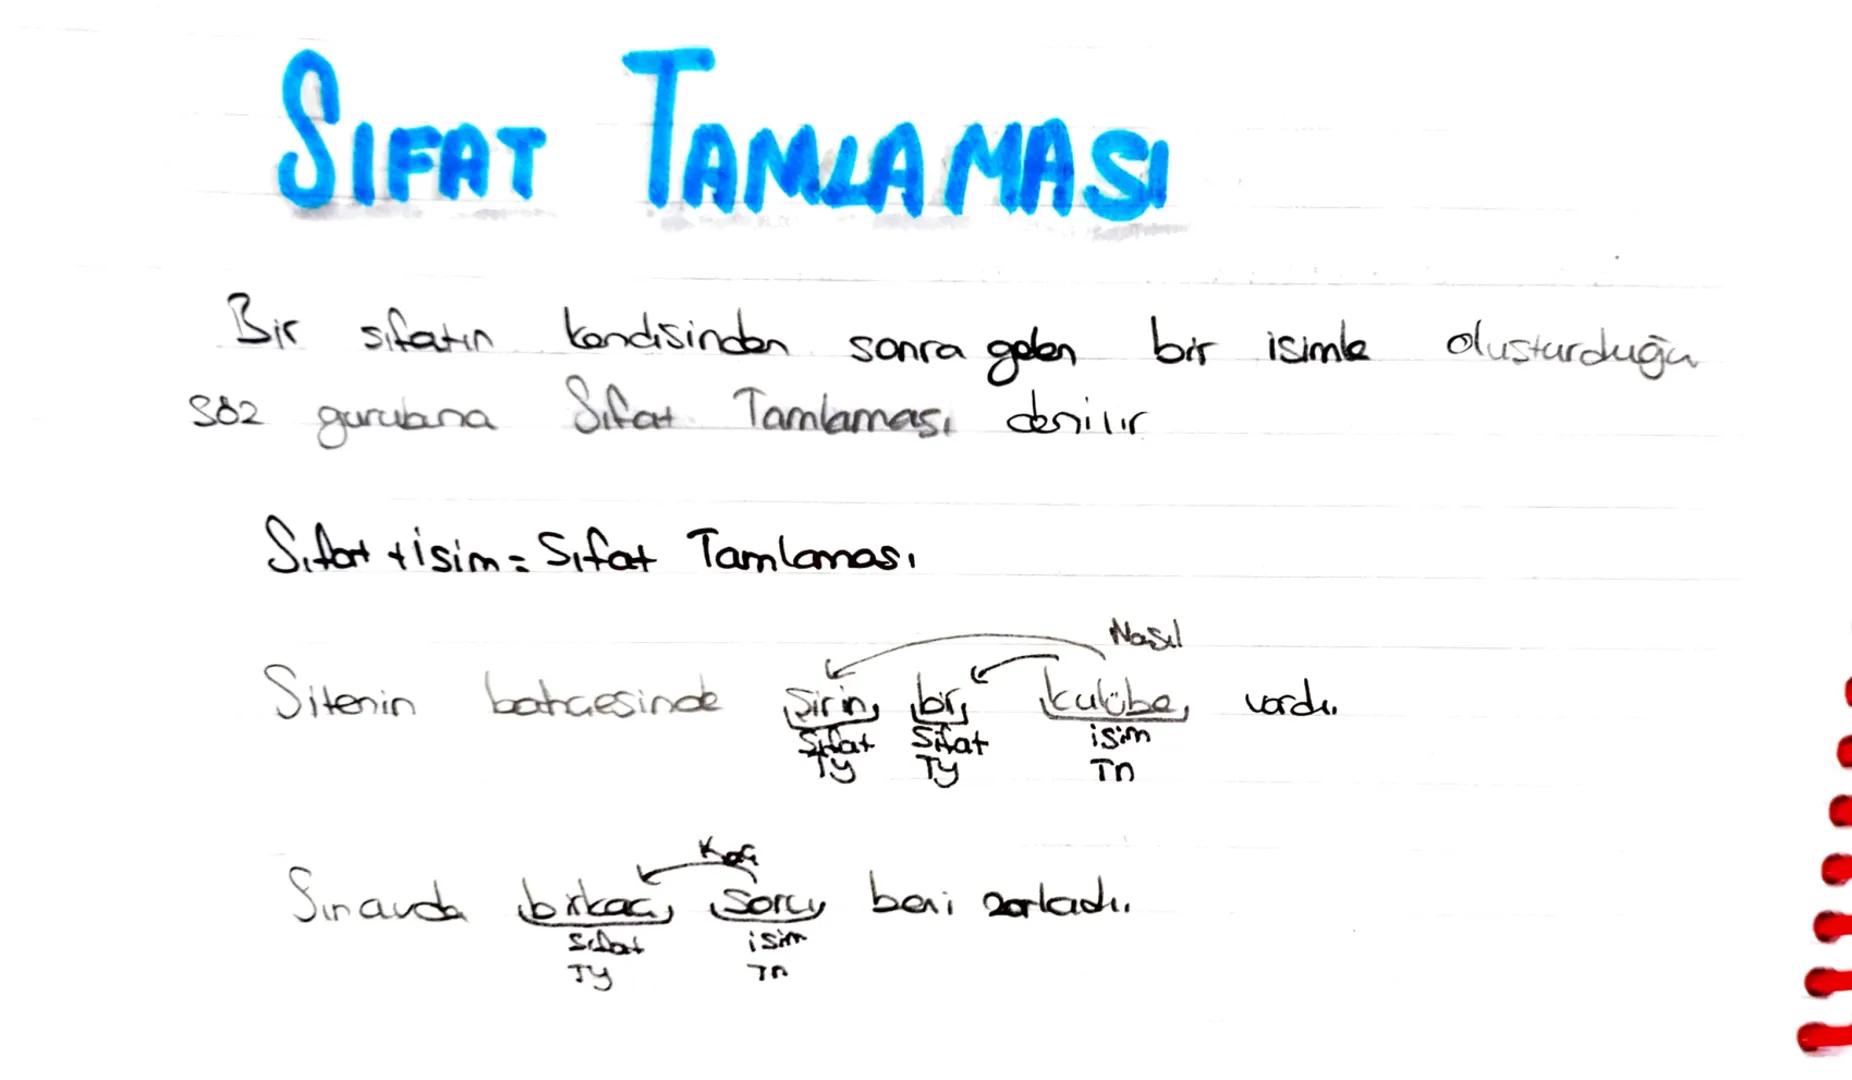 SIFAT TAMLAMASI
Bir sıfatın kendisinden sonra gelen bir isimle oluşturduğu
söz gurubuna Sıfat Tamlaması denilir
Sıfat + isim = Sıfat Tamlaması
Nasıl
Sitenin bahçesinde şirin bir kulübe vardı.
Sıfat Sıfat isim
Ty Ty Tn
Kaç
Sınavda birkaç soru beni zorladı.
Sıfat isim
Ty Tn